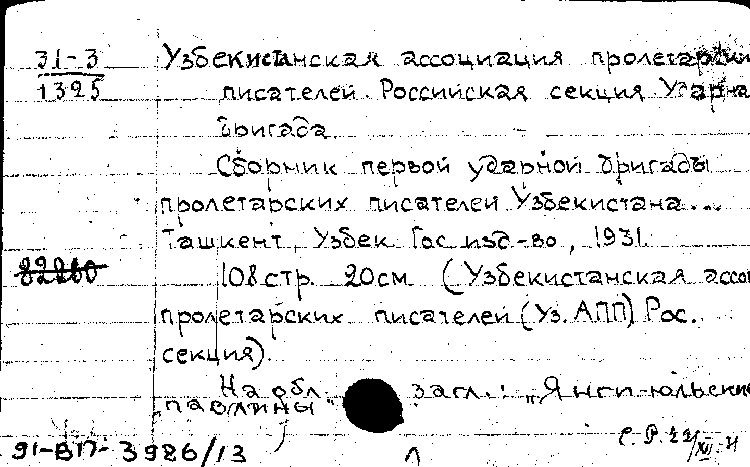 31-3
1325
Узбекистанская ассоциация пролетарских
писателей. Российская секция Ударна
бригада
Сборник первой ударной бригады
пролетарских писателей Узбекистана...
Ташкент, Узбек. Гос. изд-во, 1931.
82260
108 стр. 20 см. (Узбекистанская ассо
пролетарских писателей (Уз. АПП) Рос.
секция).
На обл. загл.: „Янги-юльские
павлины"
91-ВП-3986/13